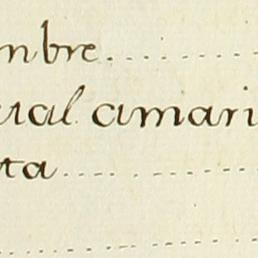 mbre
ural amari
ta